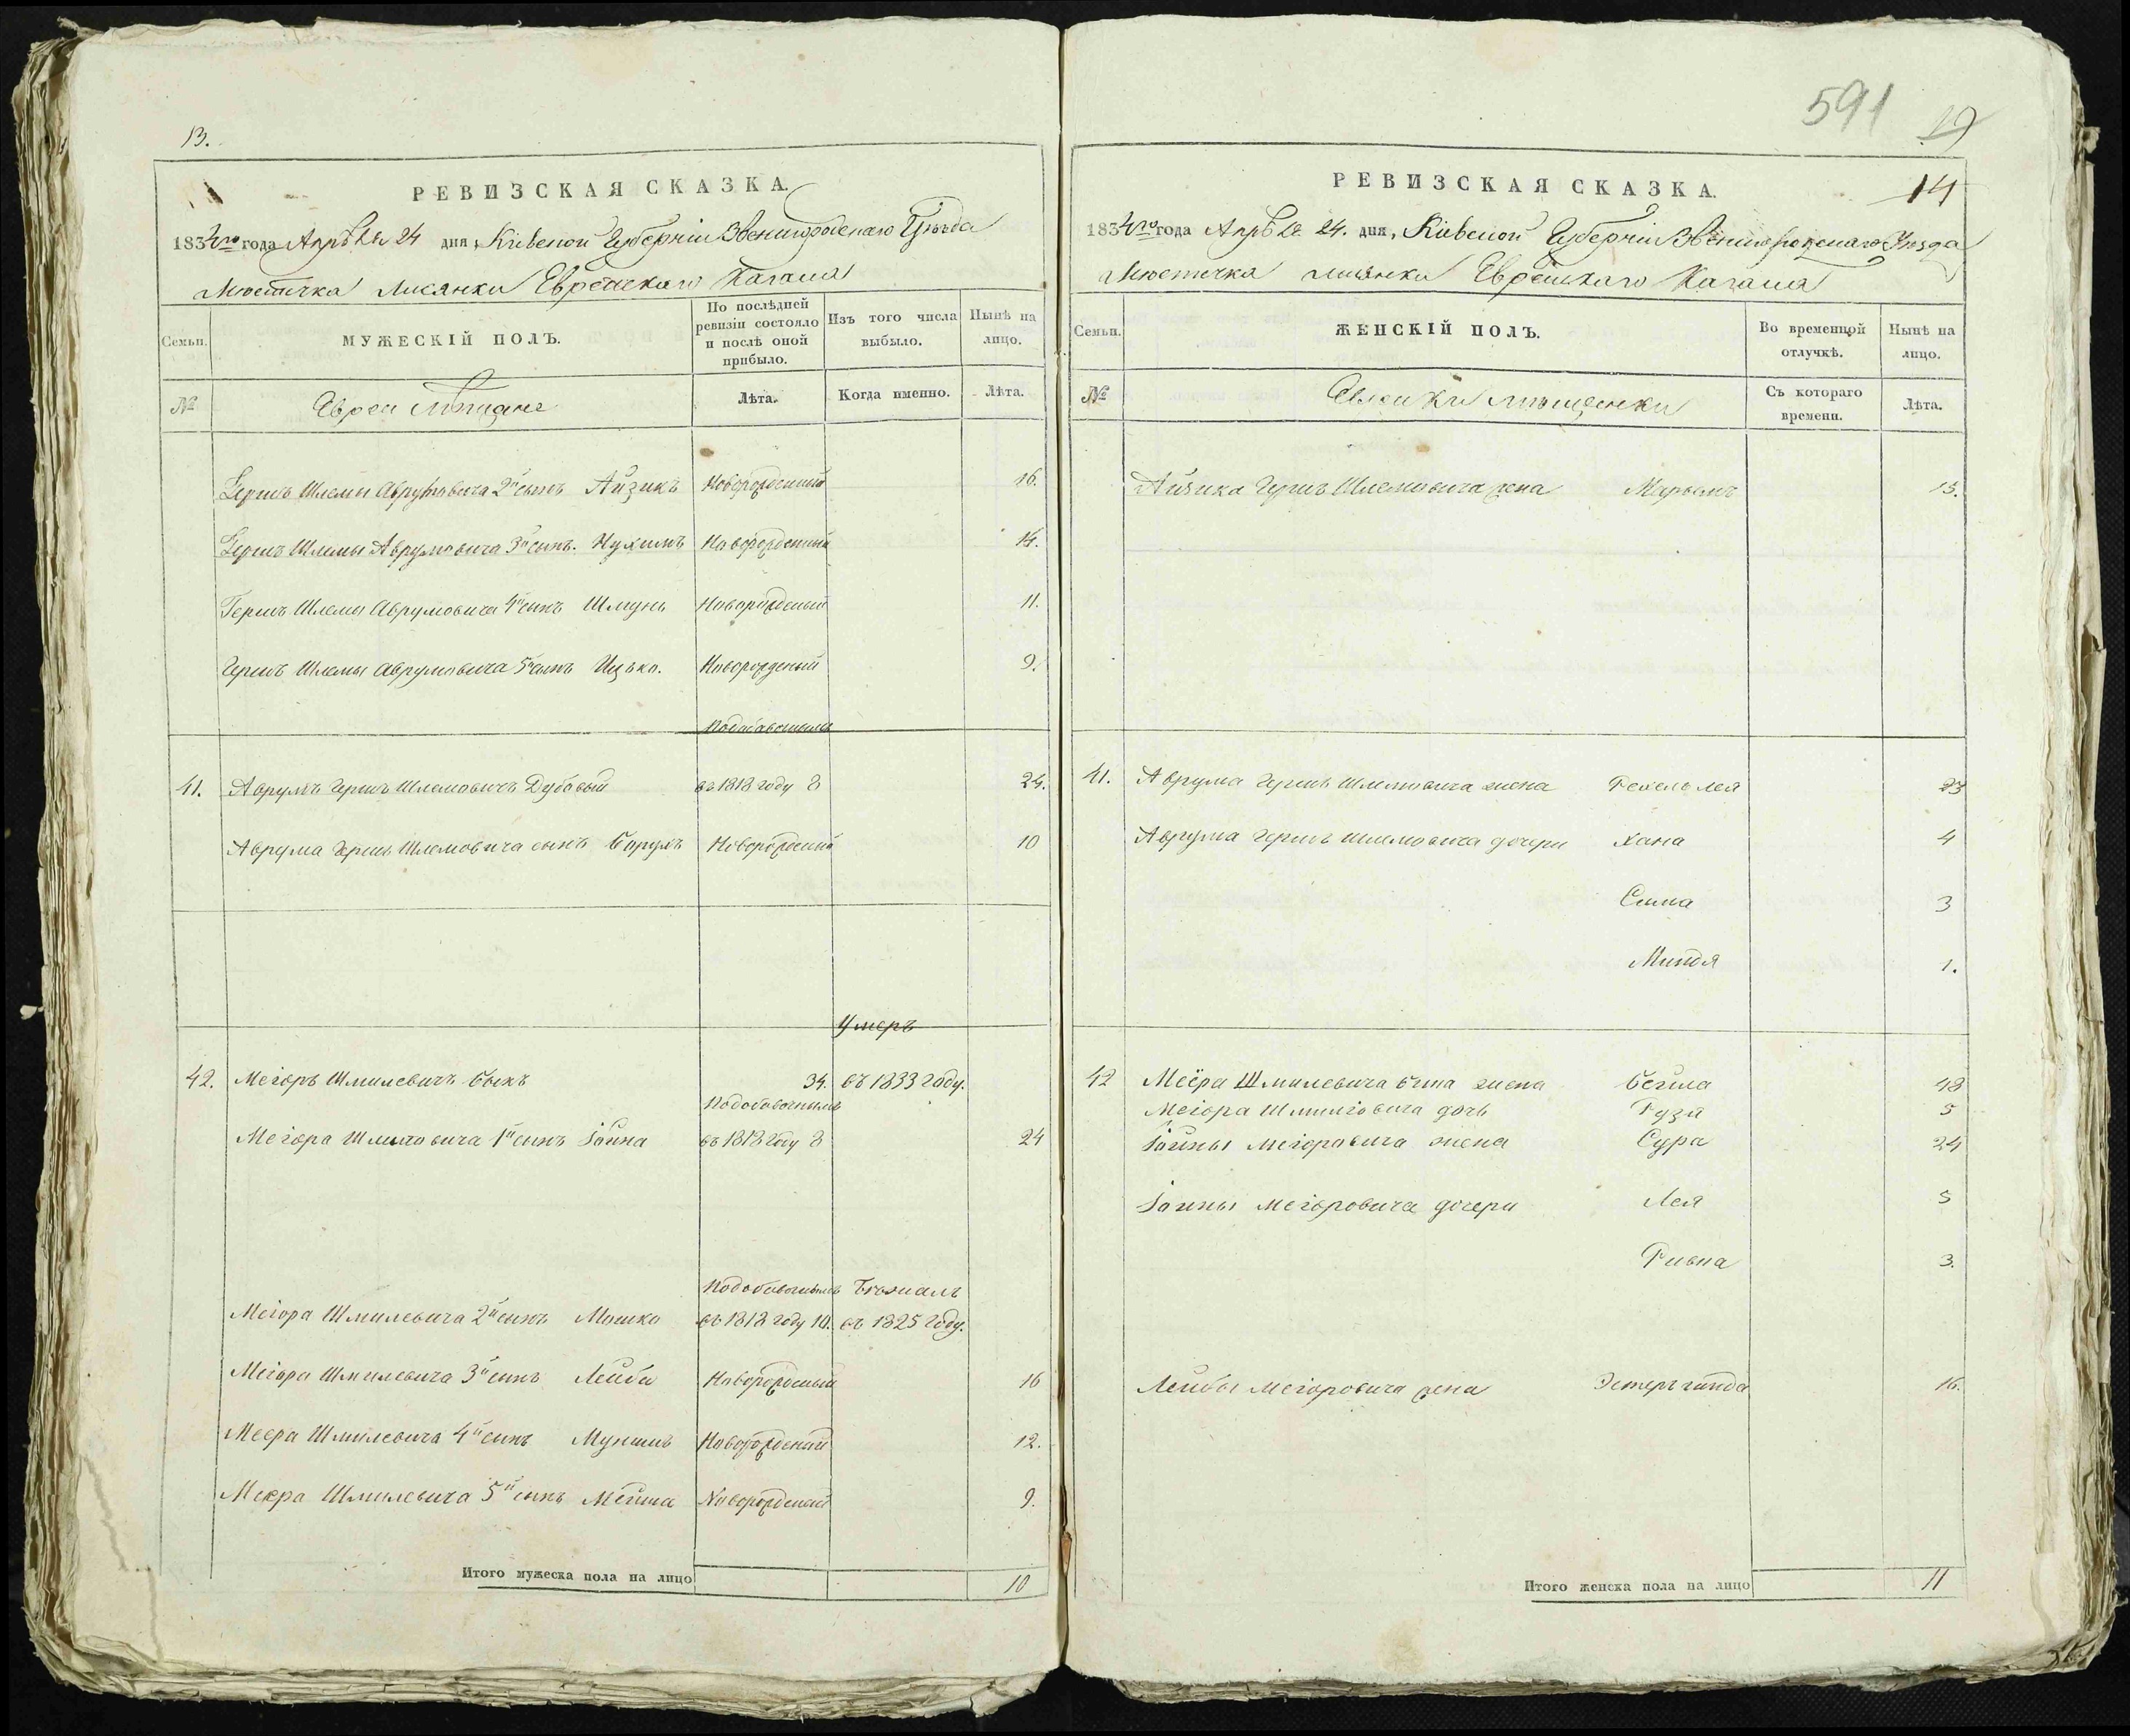 13.
РЕВИЗСКАЯ СКАЗКА.
1834го года Апрѣля 24 дня, Кіевской Губерніи Звенигородскаго Уѣзда
Мѣстечка Лисянки Еврейскаго Кагала
Семьи.
МУЖЕСКІЙ ПОЛЪ.
По послѣдней ревизіи состояло и послѣ оной прибыло.
Изъ того числа выбыло.
Нынѣ на лицо.
№
Евреи Мѣщане
Лѣта.
Когда именно.
Лѣта.
Гершъ Шлемы Аврумовича 2й сынъ Айзикъ Новорожденный 16.
Гершъ Шлемы Аврумовича 3й сынъ. Нухимъ Новорожденный 14.
Гершъ Шлемы Аврумовича 4й сынъ Шмунь Новорожденый 11.
Гершъ Шлемы Аврумовича 5й сынъ Ицько. Новорожденый 9.
41. Аврумъ Гершъ Шлемовичъ Дубовый въ 1818 году 8 24.
Аврума Гершъ Шлемовича сынъ Сорулъ Новорожденный 10
Умеръ
42. Меіоръ Шмилевичъ Быкъ 34. въ 1833 году.
Мегора Шмилевича 1й сынъ Іойна въ 1818 году 8 24
Бежалъ
Меіора Шмилевича 2й сынъ Мошко въ 1818 году 10. въ 1825 году.
Меіора Шмилевича 3й сынъ Лейба Новорожденый 16
Меера Шмилевича 4й сынъ Муншъ Новорожденый 12.
Меера Шмилевича 5й сынъ Новорожденый 9.
Итого мужеска пола на лицо 10
591
19
14
РЕВИЗСКАЯ СКАЗКА.
1834го года Апрѣля 24. дня, Кіевской Губерніи Звенигородскаго Уѣзда
Мѣстечка Лисянки Еврейскаго Кагала
Семьи.
ЖЕНСКІЙ ПОЛЪ.
Во временной отлучкѣ.
Нынѣ на лицо.
№
Еврейки мѣщанки
Съ котораго времени.
Лѣта.
Айзика Гершъ Шлемовича жена Марьемъ 15.
41. Аврума Гершъ Шлемовича жена Рехель Лея 23
Аврума Гершъ Шлемовича дочери Хана 4
Сима 3
Миндя 1.
42 Меёра Шмилевича Быка жена Бейла 48
Меіора Шмилевича дочь Рузя 5
Іойны Меіоровича жена Сура 24
Іойны Меіоровича дочери Лея 5
Ривка 3.
Лейбы Меіоровича жена Эстеръ Гинда 16.
Итого женска пола на лицо 11